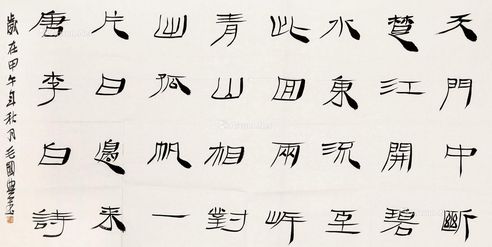 天門中斷
楚江開碧
水東流至
此回兩岸
青山相對
出孤帆一
片日邊來
唐李白詩
歲在甲午年秋月毛國典書